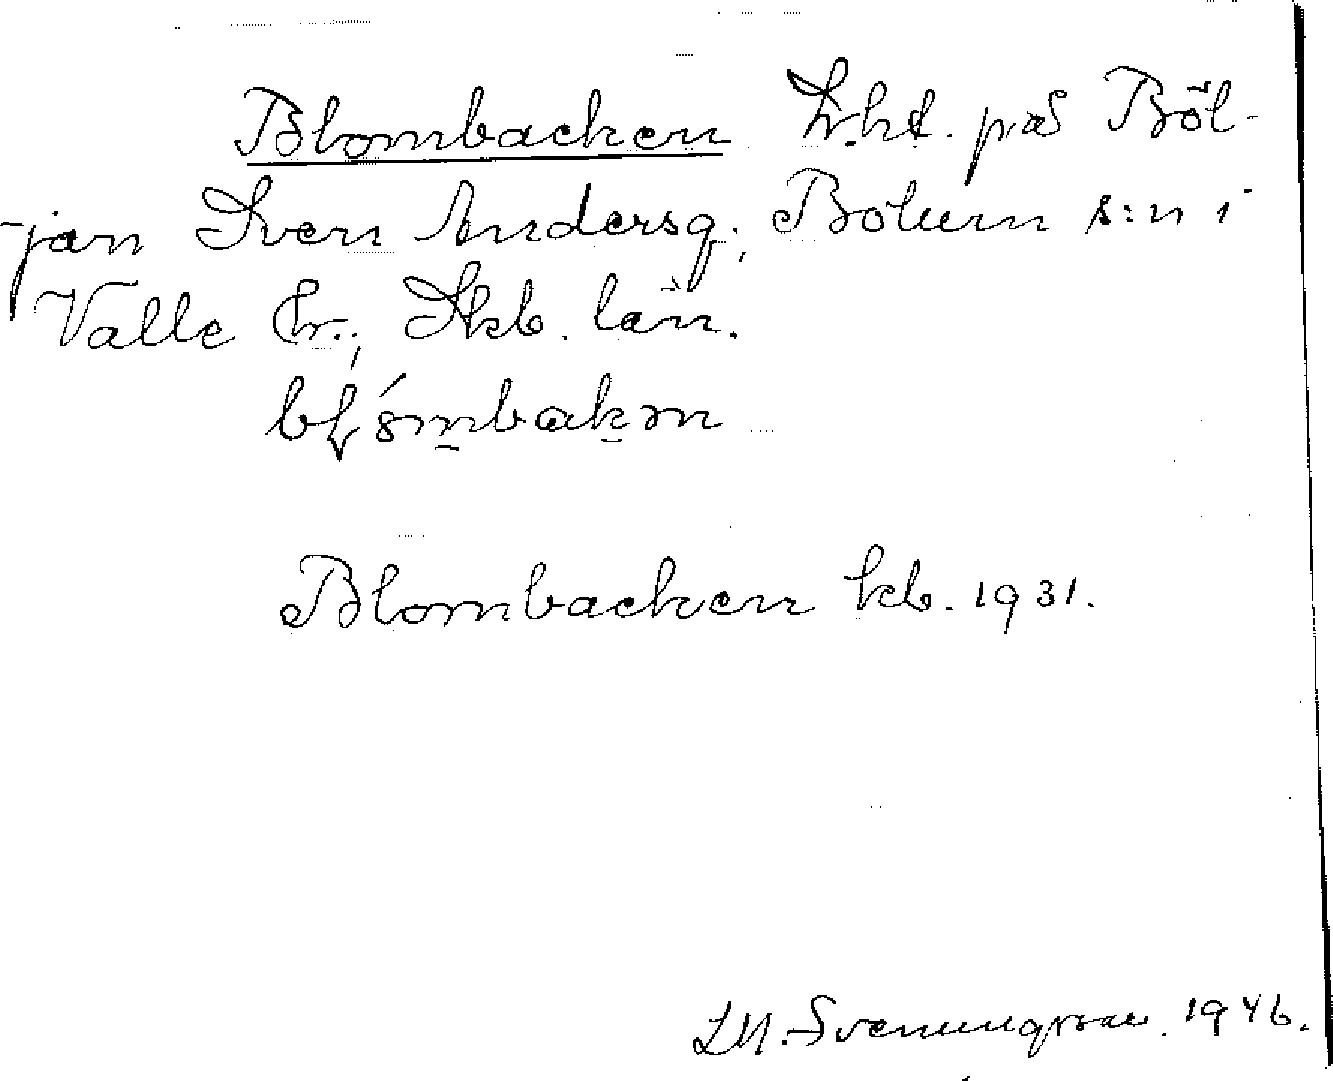 Blombacken Lht. på Böl-
jan Sven Andersg.; Bolum s:n i
Valle hd., Skb. län.
Blombacken kb. 1931.
Svenungsson. 1946.